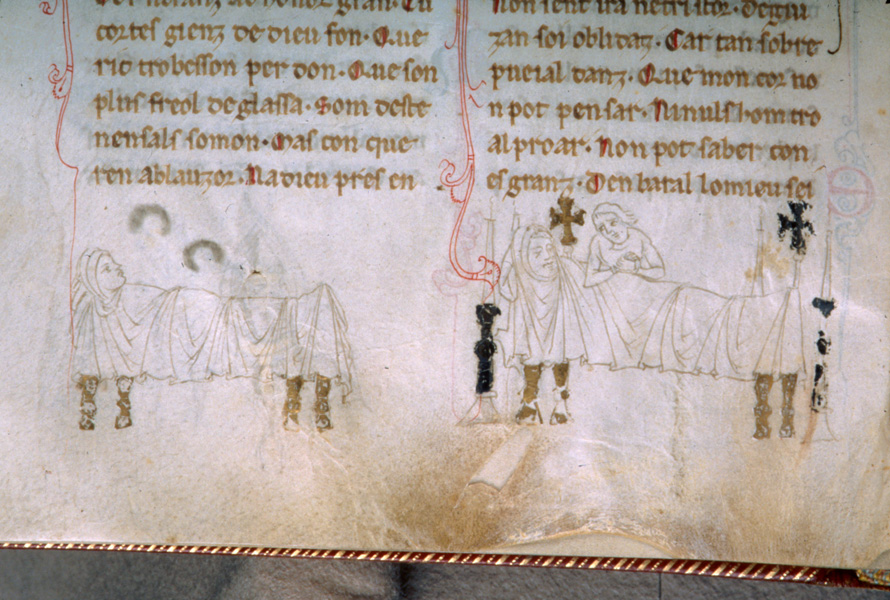 cortes gienz de dieu fon. Que
ric trobesson per don. Que son
plus freol de glassa. Som deste
nensals somon. Mas con que
ren ablauzor. Na dieu pres en
Non sent ira ne tristor. degui
zan soi oblidaz. Car tan sobre
pueial danz. Que mon cor no
n pot pensar. Ni nuls hom tro
al proar. Non pot saber con
es granz. Den baral lo mieu sei